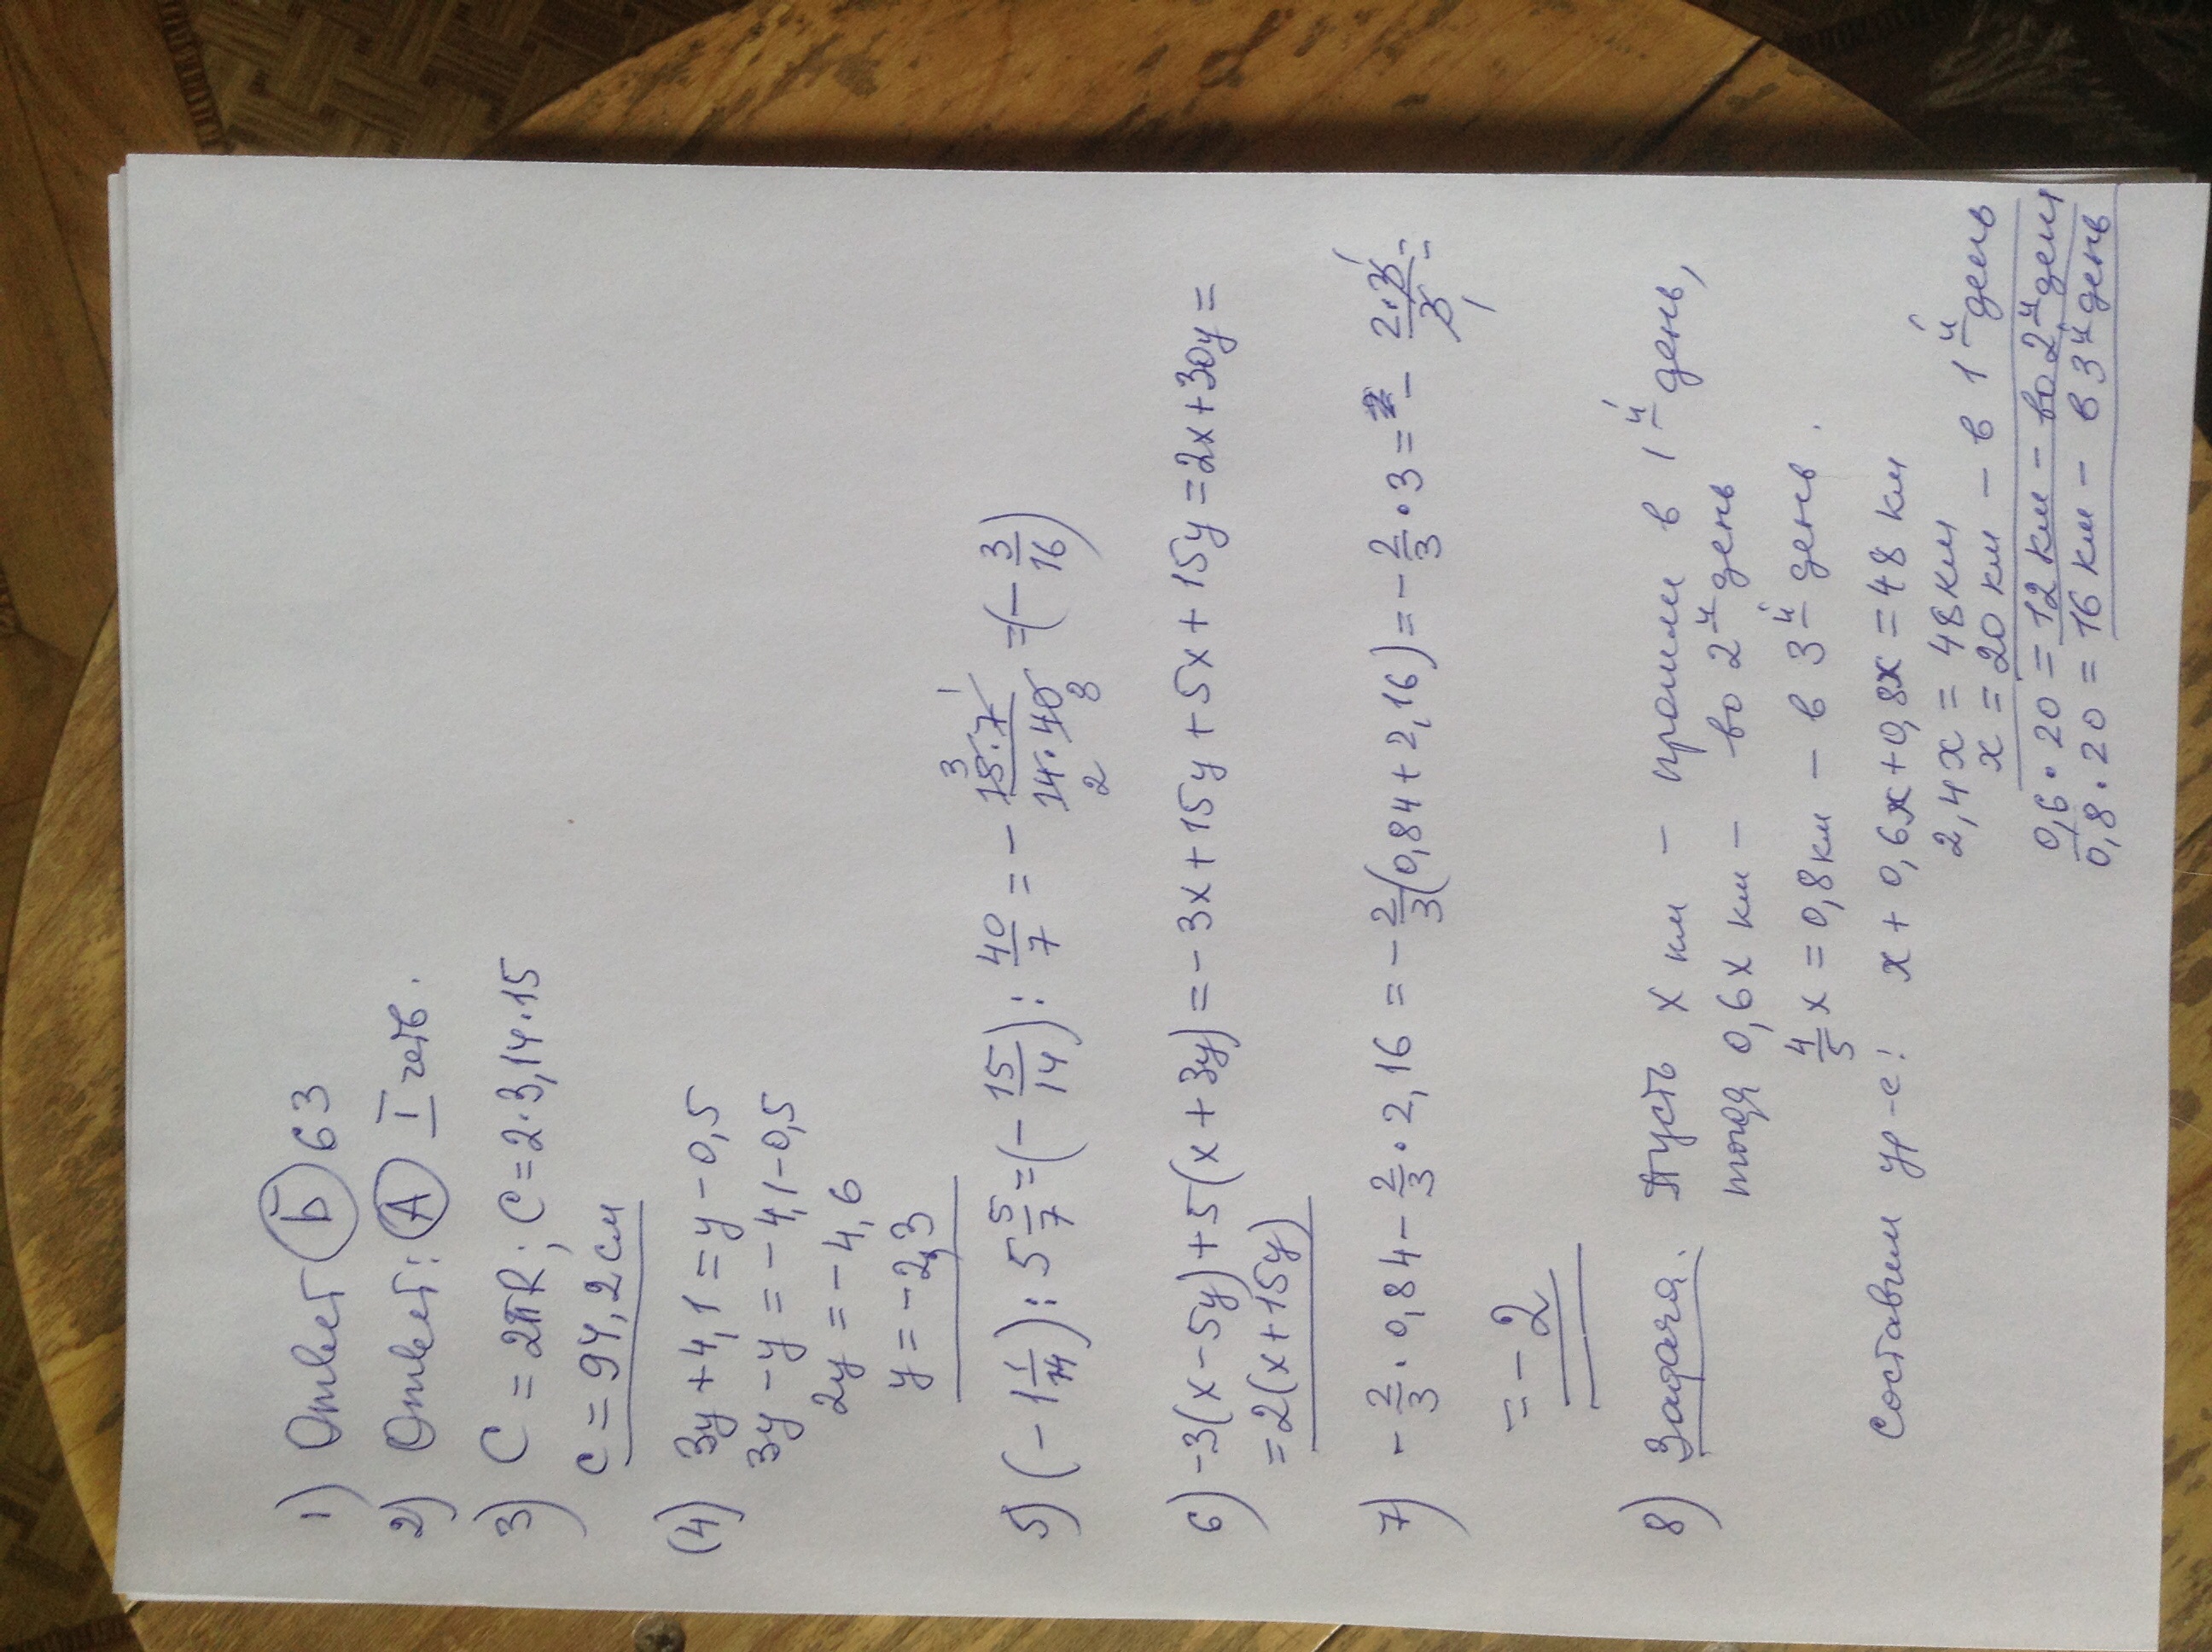 1) Ответ Б 63
2) Ответ: А I четв.
3) C = 2πR; C = 2·3,14·15
C = 94,2 см
(4) 3y + 4,1 = y - 0,5
3y - y = -4,1 - 0,5
2y = -4,6
y = -2,3
5) (-1 1/14) : 5 5/7 = (-15/14) : 40/7 = - 15·7/14·40 = (-3/16)
6) -3(x - 5y) + 5(x + 3y) = -3x + 15y + 5x + 15y = 2x + 30y =
= 2(x + 15y)
7) - 2/3 · 0,84 - 2/3 · 2,16 = - 2/3 (0,84 + 2,16) = - 2/3 · 3 = - 2·3/3 =
= -2
8) Задача. Пусть x км - прошли в 1й день,
тогда 0,6x км - во 2й день
4/5 x = 0,8 км - в 3й день.
Составим ур-е: x + 0,6x + 0,8x = 48 км
2,4x = 48 км
x = 20 км - в 1й день
0,6 · 20 = 12 км - во 2й день
0,8 · 20 = 16 км - в 3й день